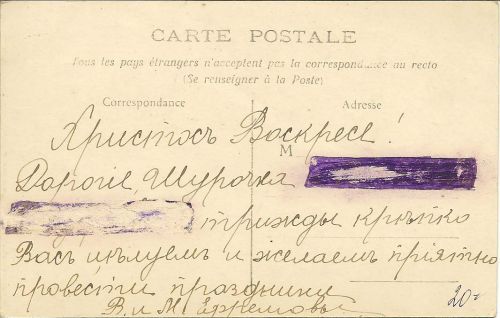 CARTE POSTALE
Tous les pays étrangers n'acceptent pas la correspondance au recto
(Se renseigner à la Poste)
Correspondance
Adresse
Христосъ Воскресе!
M
Дорогіе, Шурочка
трижды крѣпко
Васъ цѣлуемъ и желаемъ пріятно
провести праздники
В. и М. Ефремовы
20=